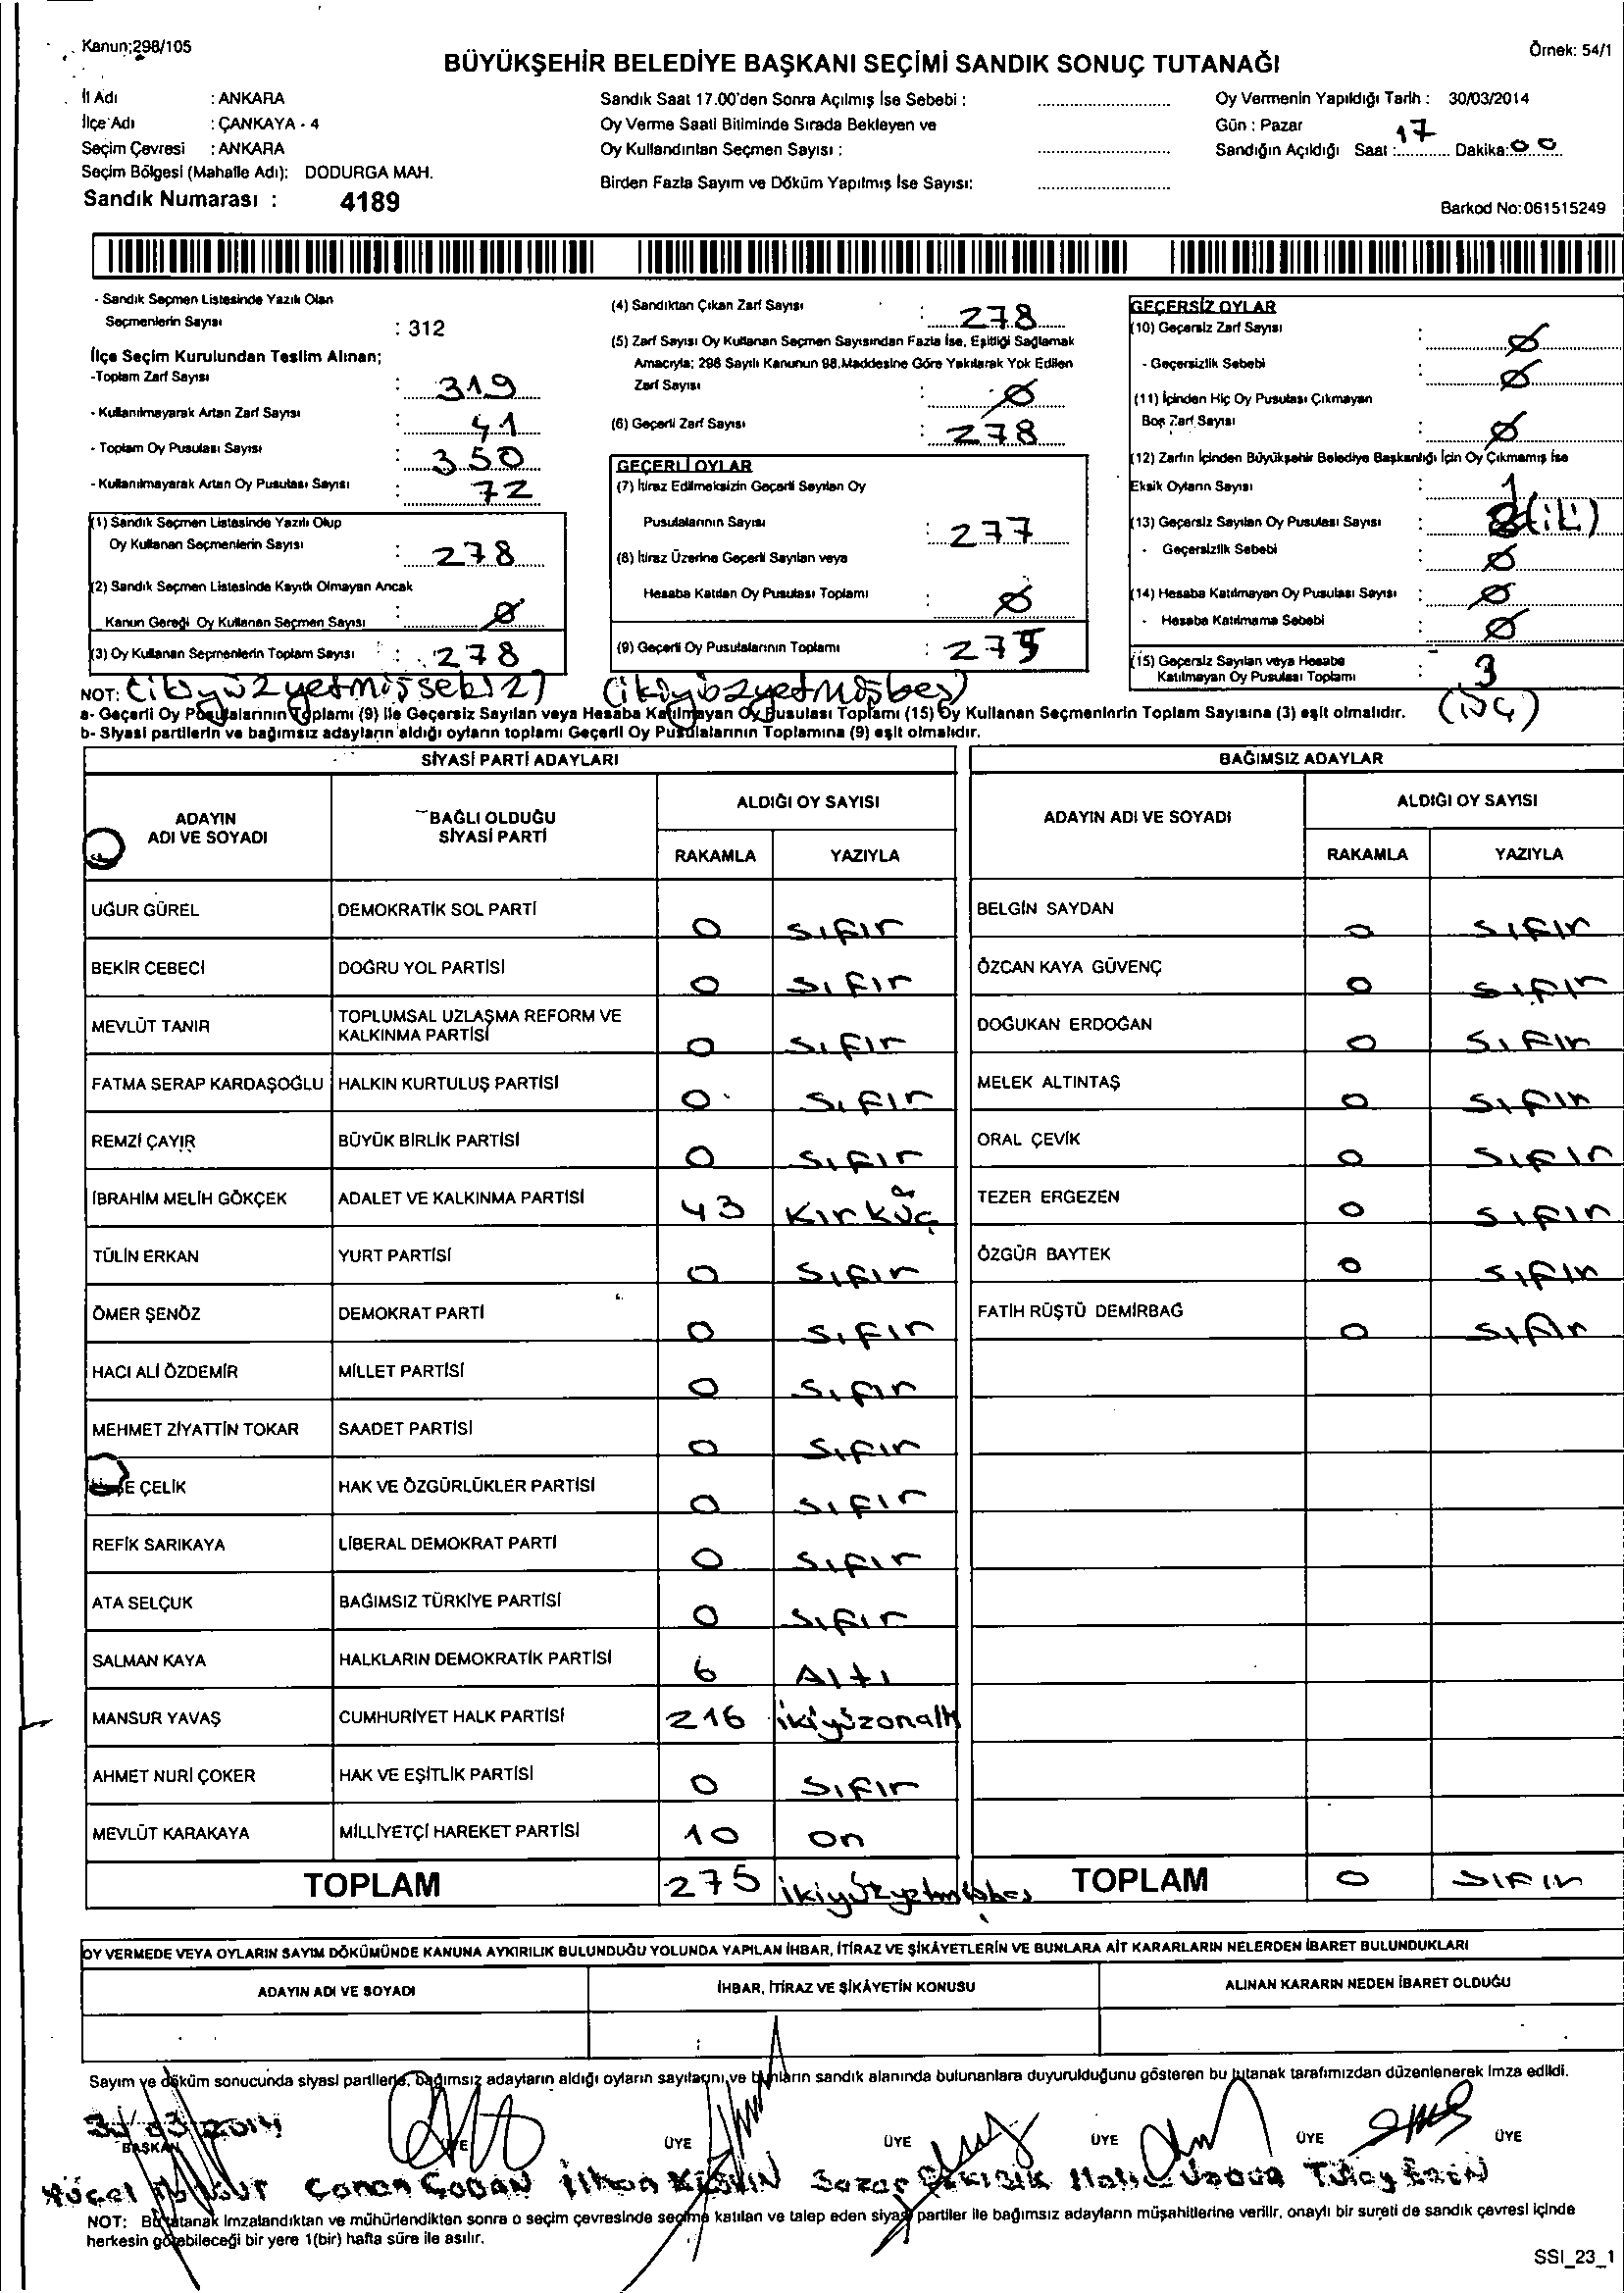 Kanun;298/105
Örnek: 54/1
BÜYÜKŞEHİR BELEDİYE BAŞKANI SEÇİMİ SANDIK SONUÇ TUTANAĞI
İl Adı : ANKARA
İlçe Adı : ÇANKAYA - 4
Seçim Çevresi : ANKARA
Seçim Bölgesi (Mahalle Adı): DODURGA MAH.
Sandık Numarası : 4189
Sandık Saat 17.00'den Sonra Açılmış İse Sebebi :
Oy Verme Saati Bitiminde Sırada Bekleyen ve
Oy Kullandırılan Seçmen Sayısı :
Birden Fazla Sayım ve Döküm Yapılmış İse Sayısı:
Oy Vermenin Yapıldığı Tarih : 30/03/2014
Gün : Pazar
Sandığın Açıldığı Saat : 17 Dakika: 00
Barkod No:061515249
- Sandık Seçmen Listesinde Yazılı Olan
Seçmenlerin Sayısı : 312
İlçe Seçim Kurulundan Teslim Alınan;
-Toplam Zarf Sayısı : 319
- Kullanılmayarak Artan Zarf Sayısı : 41
- Toplam Oy Pusulası Sayısı : 350
- Kullanılmayarak Artan Oy Pusulası Sayısı : 72
(1) Sandık Seçmen Listesinde Yazılı Olup
Oy Kullanan Seçmenlerin Sayısı : 278
(2) Sandık Seçmen Listesinde Kayıtlı Olmayan Ancak
Kanun Gereği Oy Kullanan Seçmen Sayısı : Ø
(3) Oy Kullanan Seçmenlerin Toplam Sayısı : 278
(ikiyüzyetmişsekiz)
(4) Sandıktan Çıkan Zarf Sayısı : 278
(5) Zarf Sayısı Oy Kullanan Seçmen Sayısından Fazla İse, Eşitliği Sağlamak
Amacıyla; 298 Sayılı Kanunun 98.Maddesine Göre Yakılarak Yok Edilen
Zarf Sayısı : Ø
(6) Geçerli Zarf Sayısı : 278
GEÇERLİ OYLAR
(7) İtiraz Edilmeksizin Geçerli Sayılan Oy
Pusulalarının Sayısı : 277
(8) İtiraz Üzerine Geçerli Sayılan veya
Hesaba Katılan Oy Pusulası Toplamı : Ø
(9) Geçerli Oy Pusulalarının Toplamı : 275
(ikiyüzyetmişbeş)
GEÇERSİZ OYLAR
(10) Geçersiz Zarf Sayısı : Ø
- Geçersizlik Sebebi : Ø
(11) İçinden Hiç Oy Pusulası Çıkmayan
Boş Zarf Sayısı : Ø
(12) Zarfın İçinden Büyükşehir Belediye Başkanlığı İçin Oy Çıkmamış İse
Eksik Oyların Sayısı : 1
(13) Geçersiz Sayılan Oy Pusulası Sayısı :
- Geçersizlik Sebebi : Ø
(14) Hesaba Katılmayan Oy Pusulası Sayısı : Ø
- Hesaba Katılmama Sebebi : Ø
(15) Geçersiz Sayılan veya Hesaba
Katılmayan Oy Pusulası Toplamı : 3
(üç)
NOT:
a- Geçerli Oy Pusulalarının Toplamı (9) ile Geçersiz Sayılan veya Hesaba Katılmayan Oy Pusulası Toplamı (15) Oy Kullanan Seçmenlerin Toplam Sayısına (3) eşit olmalıdır.
b- Siyasi partilerin ve bağımsız adayların aldığı oyların toplamı Geçerli Oy Pusulalarının Toplamına (9) eşit olmalıdır.
SİYASİ PARTİ ADAYLARI
ADAYIN ADI VE SOYADI
BAĞLI OLDUĞU SİYASİ PARTİ
ALDIĞI OY SAYISI
RAKAMLA YAZIYLA
UĞUR GÜREL DEMOKRATİK SOL PARTİ 0 sıfır
BEKİR CEBECİ DOĞRU YOL PARTİSİ 0 sıfır
MEVLÜT TANIR TOPLUMSAL UZLAŞMA REFORM VE KALKINMA PARTİSİ 0 sıfır
FATMA SERAP KARDAŞOĞLU HALKIN KURTULUŞ PARTİSİ 0 sıfır
REMZİ ÇAYIR BÜYÜK BİRLİK PARTİSİ 0 sıfır
İBRAHİM MELİH GÖKÇEK ADALET VE KALKINMA PARTİSİ 43 Kırküç
TÜLİN ERKAN YURT PARTİSİ 0 sıfır
ÖMER ŞENÖZ DEMOKRAT PARTİ 0 sıfır
HACI ALİ ÖZDEMİR MİLLET PARTİSİ 0 sıfır
MEHMET ZİYATTİN TOKAR SAADET PARTİSİ 0 sıfır
ÇELİK HAK VE ÖZGÜRLÜKLER PARTİSİ 0 sıfır
REFİK SARIKAYA LİBERAL DEMOKRAT PARTİ 0 sıfır
ATA SELÇUK BAĞIMSIZ TÜRKİYE PARTİSİ 0 sıfır
SALMAN KAYA HALKLARIN DEMOKRATİK PARTİSİ 6 Altı
MANSUR YAVAŞ CUMHURİYET HALK PARTİSİ 216 ikiyüzonaltı
AHMET NURİ ÇOKER HAK VE EŞİTLİK PARTİSİ 0 sıfır
MEVLÜT KARAKAYA MİLLİYETÇİ HAREKET PARTİSİ 10 on
TOPLAM 275 ikiyüzyetmişbeş
BAĞIMSIZ ADAYLAR
ADAYIN ADI VE SOYADI
ALDIĞI OY SAYISI
RAKAMLA YAZIYLA
BELGİN SAYDAN 0 sıfır
ÖZCAN KAYA GÜVENÇ 0 sıfır
DOĞUKAN ERDOĞAN 0 sıfır
MELEK ALTINTAŞ 0 sıfır
ORAL ÇEVİK 0 sıfır
TEZER ERGEZEN 0 sıfır
ÖZGÜR BAYTEK 0 sıfır
FATİH RÜŞTÜ DEMİRBAĞ 0 sıfır
TOPLAM 0 sıfır
OY VERMEDE VEYA OYLARIN SAYIM DÖKÜMÜNDE KANUNA AYKIRILIK BULUNDUĞU YOLUNDA YAPILAN İHBAR, İTİRAZ VE ŞİKÂYETLERİN VE BUNLARA AİT KARARLARIN NELERDEN İBARET BULUNDUKLARI
ADAYIN ADI VE SOYADI İHBAR, İTİRAZ VE ŞİKÂYETİN KONUSU ALINAN KARARIN NEDEN İBARET OLDUĞU
Sayım ve döküm sonucunda siyasi partilerle, bağımsız adayların aldığı oyların sayılarını ve bunların sandık alanında bulunanlara duyurulduğunu gösteren bu tutanak tarafımızdan düzenlenerek imza edildi.
30/03/2014
BAŞKAN ÜYE ÜYE ÜYE ÜYE ÜYE ÜYE
Yücel Canan ÇOBAN İlhan Tülay
NOT: Bu tutanak imzalandıktan ve mühürlendikten sonra o seçim çevresinde seçime katılan ve talep eden siyasi partiler ile bağımsız adayların müşahitlerine verilir, onaylı bir sureti de sandık çevresi içinde
herkesin görebileceği bir yere 1(bir) hafta süre ile asılır.
SSI_23_1